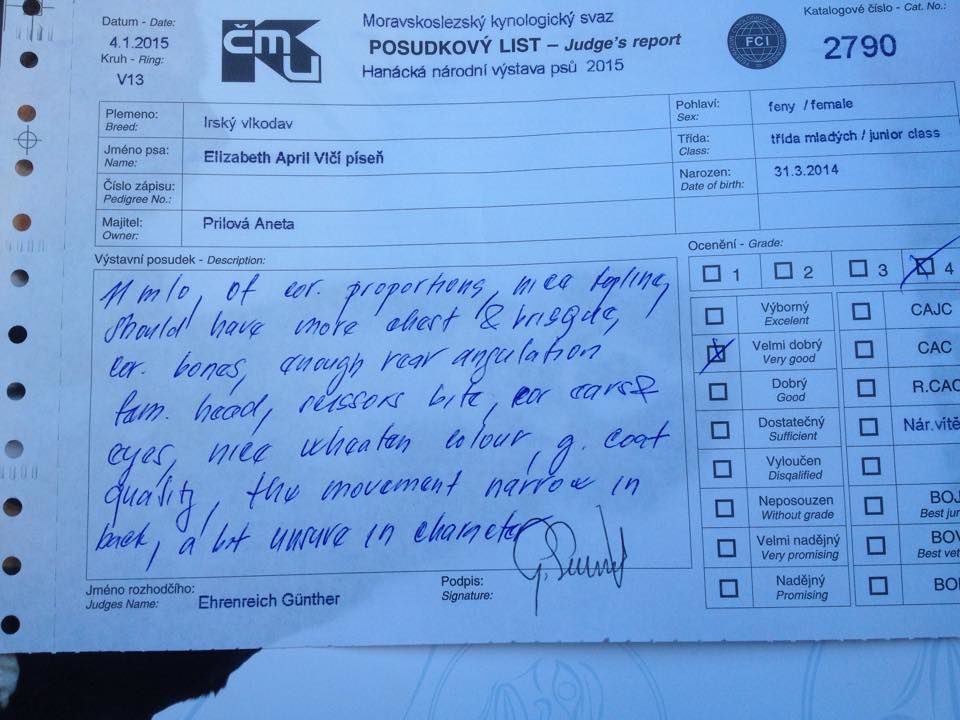 Datum - Date:
4.1.2015
Kruh - Ring:
V13
ČMKU
Moravskoslezský kynologický svaz
POSUDKOVÝ LIST – Judge's report
Hanácká národní výstava psů 2015
FCI
Katalogové číslo - Cat. No.:
2790
Plemeno:
Breed:
Irský vlkodav
Jméno psa:
Name:
Elizabeth April Vlčí píseň
Číslo zápisu:
Pedigree No.:
Majitel:
Owner:
Prilová Aneta
Pohlaví:
Sex:
feny / female
Třída:
Class:
třída mladých / junior class
Narozen:
Date of birth:
31.3.2014
Výstavní posudek - Description:
11 mlo, of cor. proportions, nice topline,
should have more chest & brisque,
cor. bones, enough rear angulation
fem. head, scissors bite, cor ears &
eyes, nice wheaten colour, g. coat
quality, the movement narrow in
back, a bit unsure in character
Ocenění - Grade:
1
2
3
4
Výborný
Excelent
Velmi dobrý
Very good
Dobrý
Good
Dostatečný
Sufficient
Vyloučen
Disqalified
Neposouzen
Without grade
Velmi nadějný
Very promising
Nadějný
Promising
CAJC
CAC
R.CAC
Nár.vítě
BOJ
Best jun
BOV
Best vet
BO
Jméno rozhodčího:
Judges Name:
Ehrenreich Günther
Podpis:
Signature: